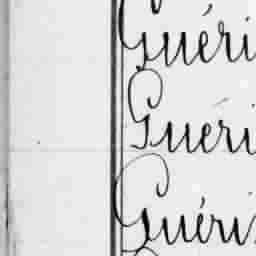 Guéri
Guéri
Guéri